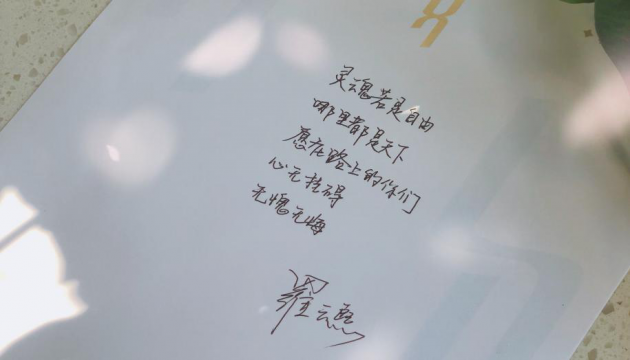 灵魂若是自由
哪里都是天下
愿在路上的你们
心无挂碍
无愧无悔